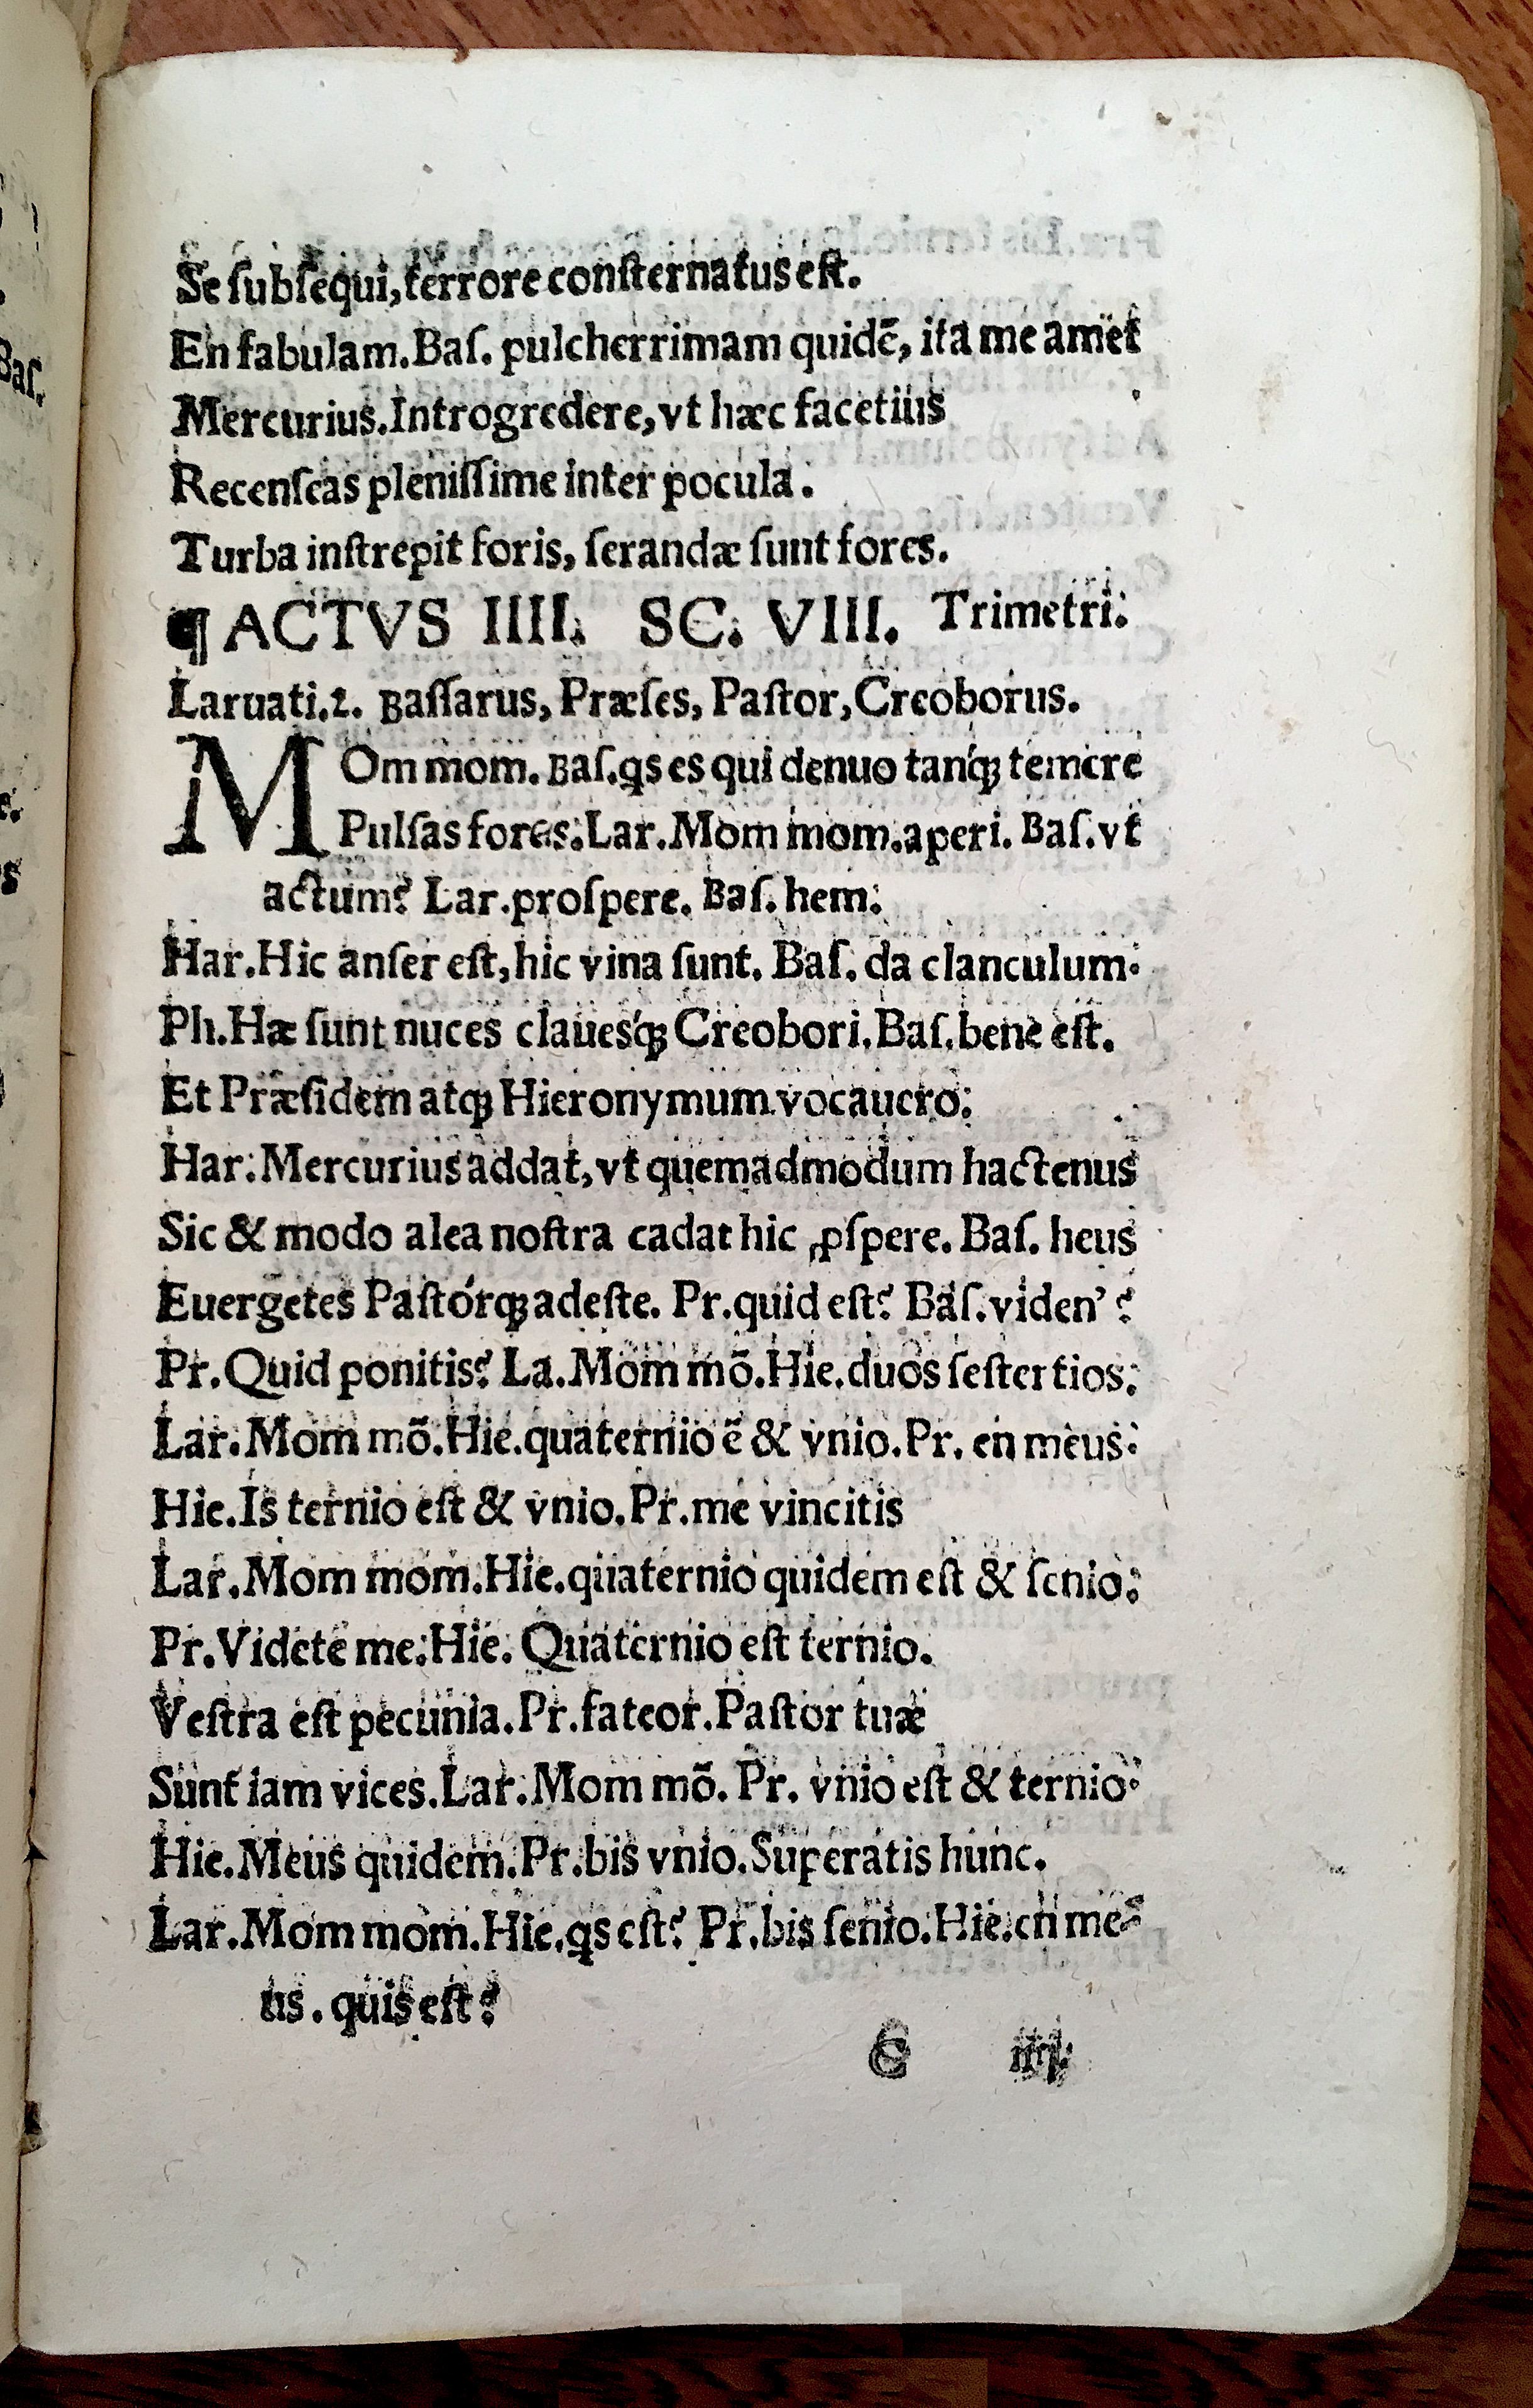 Se ſubſequi, terrore conſternatus eſt.
En fabulam. Baſ. pulcherrimam quidē, ita me amet
Mercurius. Introgredere, vt hæc facetius
Recenſeas pleniſſime inter pocula.
Turba inſtrepit foris, ſerandæ ſunt fores.
¶ ACTVS IIII. SC. VIII. Trimetri.
Laruati. 2. Baſſarus, Præſes, Paſtor, Creoborus.
MOm mom. Baſ. qs es qui denuo tanꝗ́ꝫ temere
Pulſas fores. Lar. Mom mom. aperi. Baſ. vt
actum? Lar. proſpere. Baſ. hem.
Har. Hic anſer eſt, hic vina ſunt. Baſ. da clanculum.
Ph. Hæ ſunt nuces claueſq́ꝫ Creobori. Baſ. bene eſt.
Et Præſidem atqꝫ Hieronymum vocauero.
Har. Mercurius addat, vt quemadmodum hactenus
Sic & modo alea noſtra cadat hic ꝓſpere. Baſ. heus
Euergetes Paſtórqꝫ adeſte. Pr. quid eſt? Baſ. viden'?
Pr. Quid ponitis? La. Mom mō. Hie. duos ſeſtertios.
Lar. Mom mō. Hie. quaternio ē & vnio. Pr. en meus.
Hie. Is ternio eſt & vnio. Pr. me vincitis
Lar. Mom mom. Hie. quaternio quidem eſt & ſenio.
Pr. Videte me. Hie. Quaternio eſt ternio.
Veſtra eſt pecunia. Pr. fateor. Paſtor tuæ
Sunt iam vices. Lar. Mom mō. Pr. vnio eſt & ternio.
Hie. Meus quidem. Pr. bis vnio. Superatis hunc.
Lar. Mom mom. Hie. qs eſt? Pr. bis ſenio. Hie. en me-
us. quis eſt?